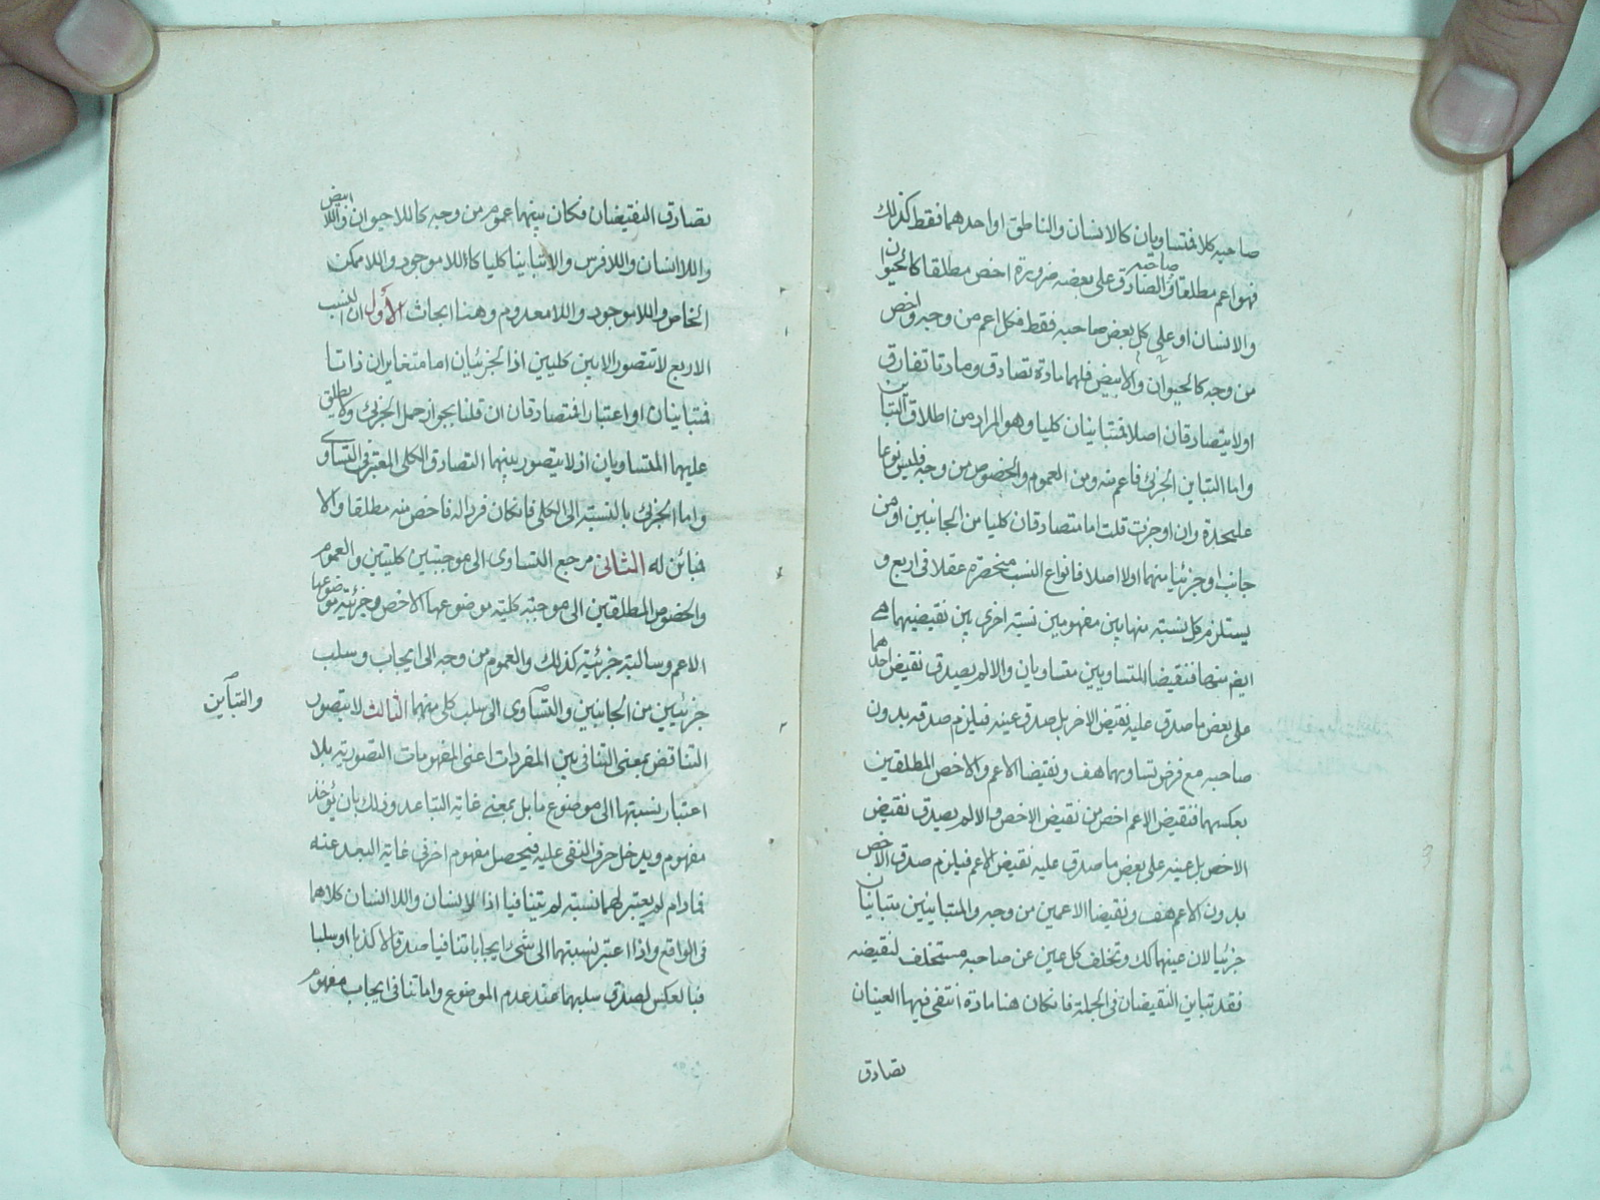 صاحبه كلا فمتساويان كالانسان والناطق او احدهما فقط كذلك
فهو اعم مطلقا والصادق على بعضه ضرورة اخص مطلقا كالحيوان
صاحبه
والانسان او على كل بعض صاحبه فقط فكل اعم من وجه واخص
من وجه كالحيوان والابيض فلهما مادة تصادق ومادتا تفارق
اولا يتصادقان اصلا فمتباينان كليا وهو المراد من اطلاق التباين
واما التباين الجزئى فاعم منه ومن العموم والخصوص من وجه فليس نوعا
عليحدة وان اوجزت قلت اما متصادقان كليا من الجانبين او من
جانب او جزئيا منهما اولا اصلا فانواع النسب منحصرة عقلا فى اربع و
يستلزم كل نسبة منها بين مفهومين نسبة اخرى بين نقيضيهما هى
ايضا منها فنقيضا المتساويين متساويان والا لم يصدق نقيض احدهما
على بعض ما صدق عليه نقيض الاخر بل صدق عينه فيلزم صدقه بدون
صاحبه مع فرض تساويهما هف ونقيضا الاعم والاخص المطلقين
بعكسهما فنقيض الاعم اخص من نقيض الاخص والا لم يصدق نقيض
الاخص بل عينه على بعض ما صدق عليه نقيض الاعم فيلزم صدق الاخص
بدون الاعم هف ونقيضا الاعمين من وجه والمتباينين متباينان
جزئيا لان عينهما كك وتخلف كل عين عن صاحبه مستخلف لنقيضه
فقد تباين النقيضان فى الجملة فان كان هنا مادة انتفى فيها العينان
تصادق
تصادق النقيضان فكان بينهما عموم من وجه كاللاحيوان واللاابيض
واللاانسان واللافرس والا تباينا كليا كاللاموجود واللاممكن
الخاص واللاموجود واللامعدوم وهنا ابحاث الأول ان النسب
الاربع لا تتصور الا بين كليين اذ الجزئيان اما متغايران ذاتا
فمتباينان او اعتبارا فمتصادقان ان قلنا بجواز حمل الجزئى ولا يطلق
عليهما المتساويان اذ لا يتصور بينهما التصادق الكلى المعتبر فى التساوى
واما الجزئى بالنسبة الى الكلى فان كان فردا له فاخص منه مطلقا والا
فمبائن له الثانى مرجع التساوى الى موجبتين كليتين والعموم
والخصوص المطلقين الى موجبة كلية موضوعها الاخص وجزئية موضوعها
الاعم وسالبة جزئية كذلك والعموم من وجه الى ايجاب وسلب
جزئيين من الجانبين والتساوى الى سلب كلى منهما الثالث لا يتصور
والتباين
التناقض بمعنى التنافى بين المفردات اعنى المفهومات التصورية بلا
اعتبار نسبتها الى موضوع ما بل بمعنى غاية التباعد وذلك بان يؤخذ
مفهوم ويدخل حرف النفى عليه فيحصل مفهوم اخر فى غاية البعد عنه
فمادام لم يعتبر لهما نسبة لم يتنافيا اذ الانسان واللاانسان كلاهما
فى الواقع واذا اعتبر نسبتهما الى شئ ايجابا تنافيا صدقا لا كذبا او سلبا
فبالعكس لصدق سلبهما عند عدم الموضوع واما تنافى ايجاب مفهوم